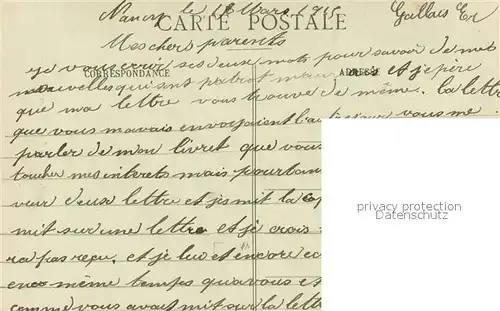 Nancy le 18 Mars 1915 Gallais Er
CARTE POSTALE
Mes chers parents
je vous ecrir ses deux mots pour savoir de mes
CORRESPONDANCE ADRESSE
nouvelles qui sont pas et jespère
que ma lettre vous trouve de même. la lettre
que vous mavais envoyaient vous me
parler de mon livret que vous
toucher mes interets mais pourtan
deux lettre et je mit la
mit sur une lettre et je crois
pas reçu, et je lui et encore
en même temps que vous et
comme vous avait mit sur la lettre
privacy protection
Datenschutz